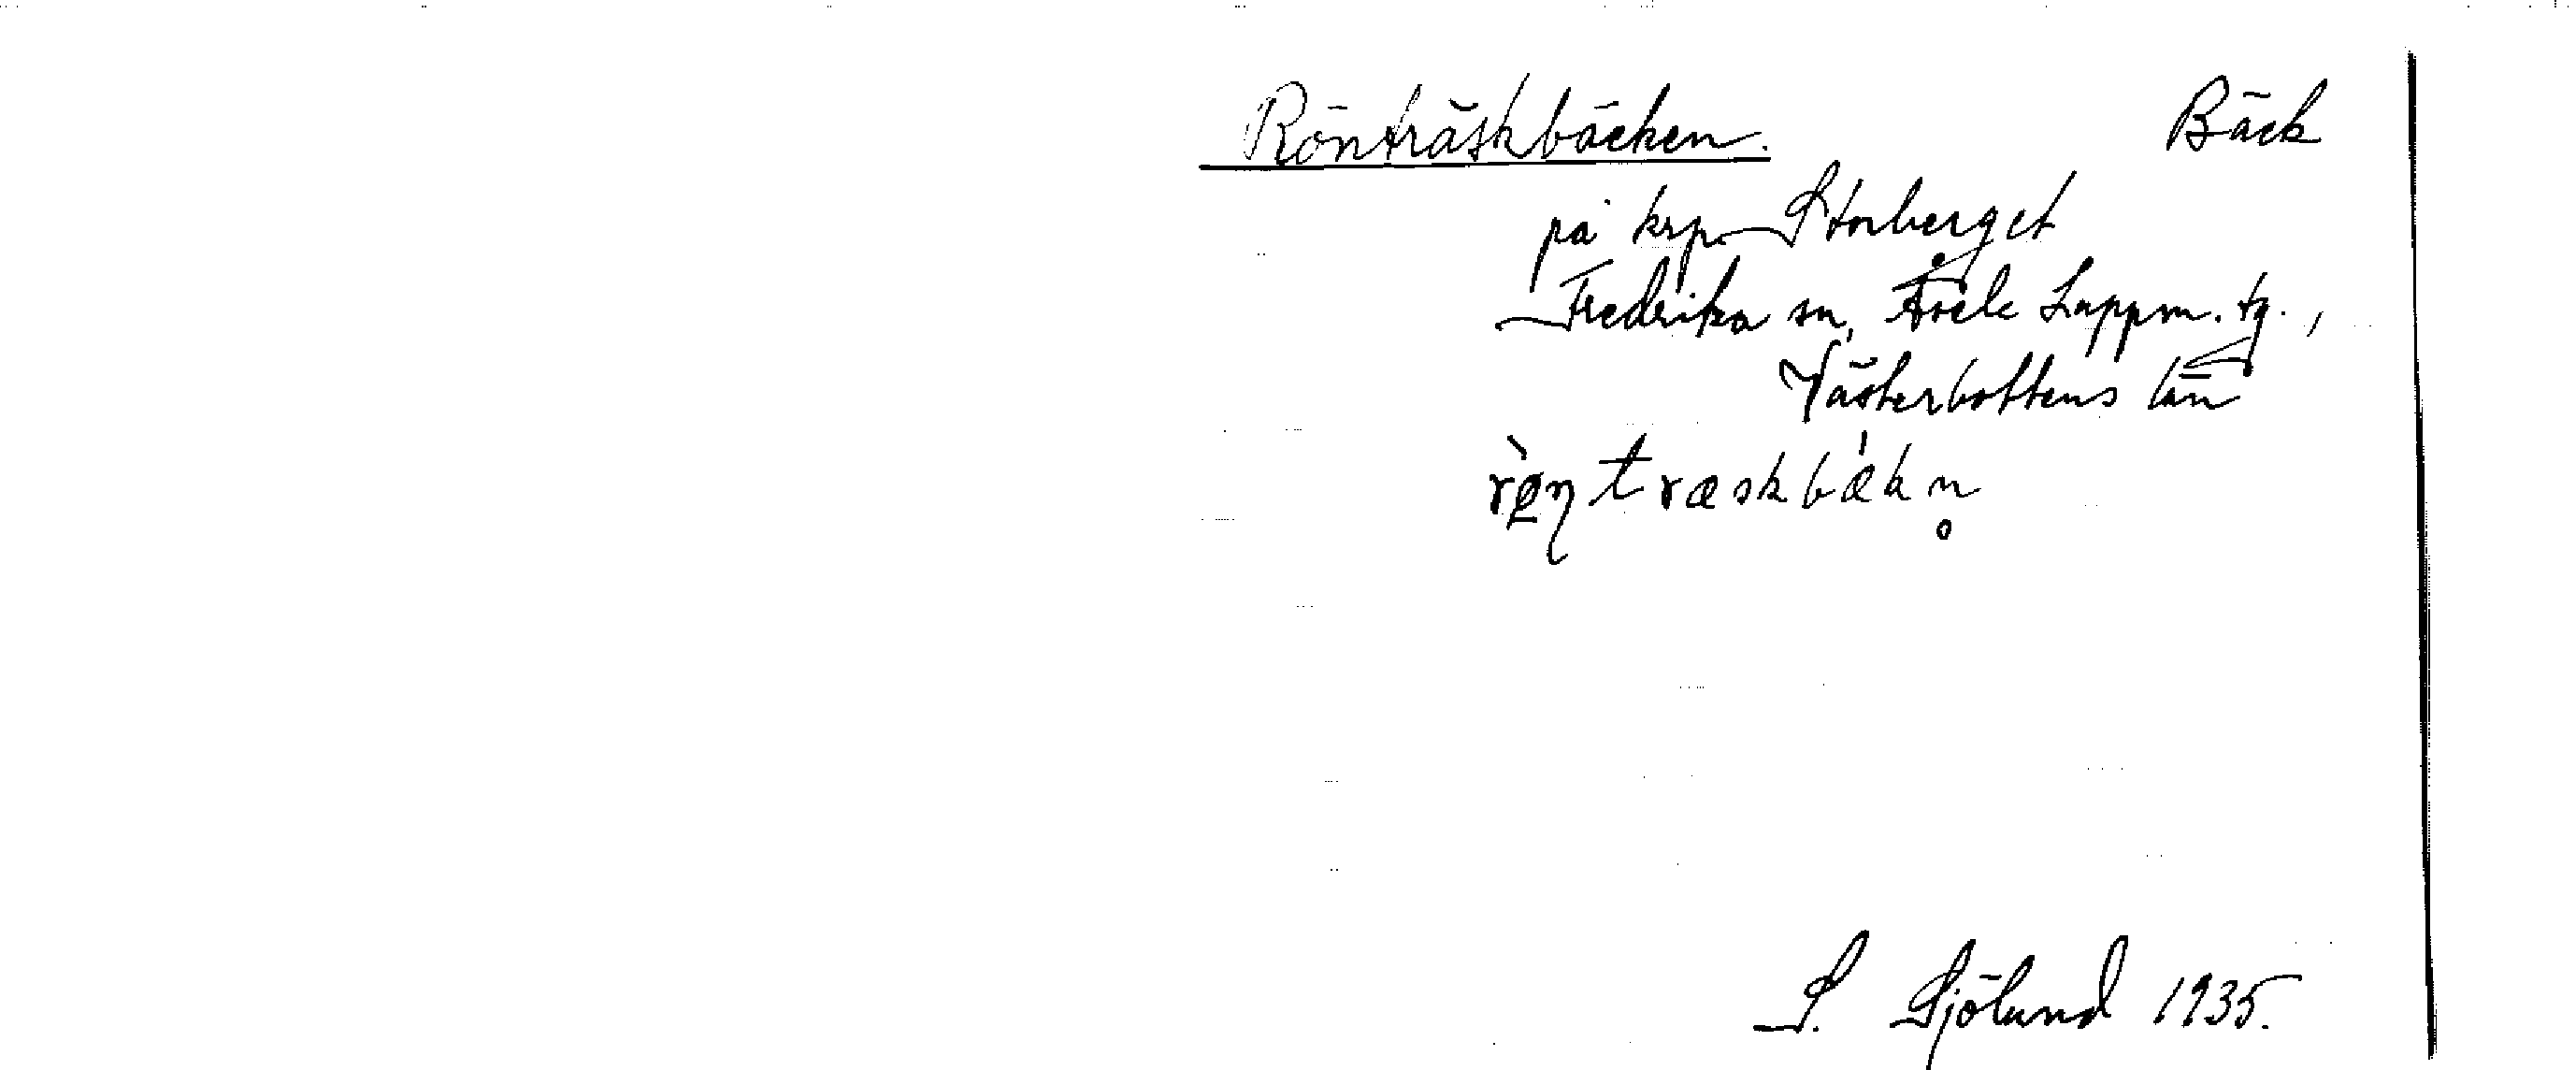 Rönträskbäcken. Bäck
på krp. Storberget
Fredrika sn, Åsele Lappm. tg.,
Västerbottens län
rø̀n træskbǽkn̥
S. Sjölund 1935.